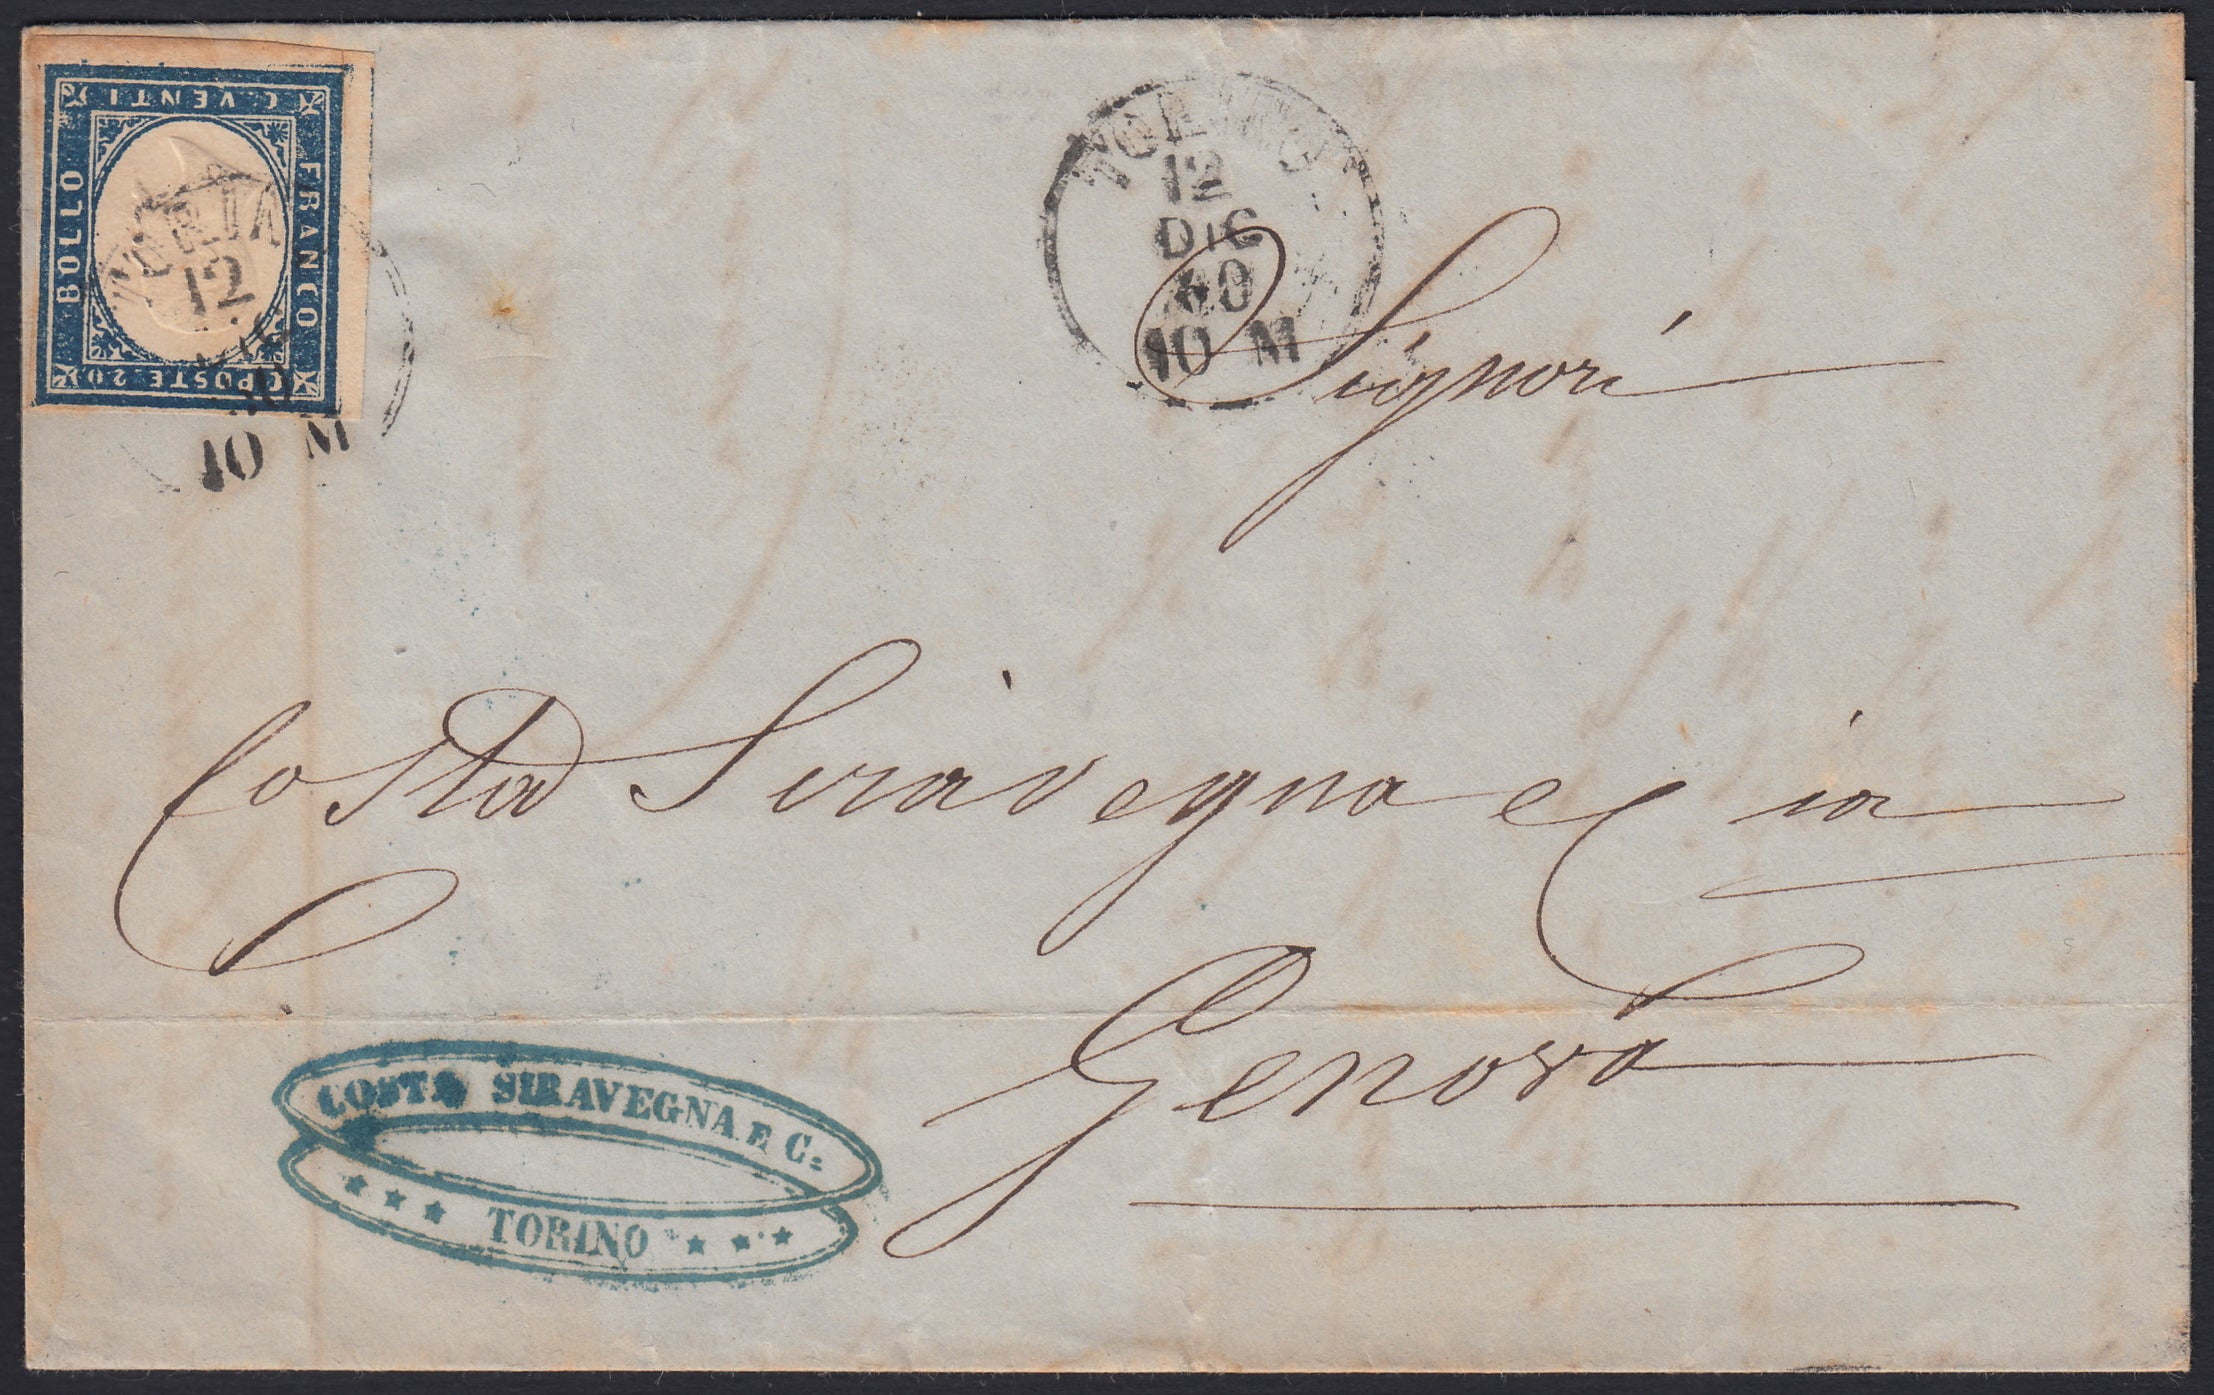 C. VENTI
BOLLO
FRANCO
C POSTE 20
TORIN
12
10 M
TORINO
12
DIC
60
10 M
Signori
Costa Siravegna e Cia
Genova
COSTA SIRAVEGNA E C.
TORINO